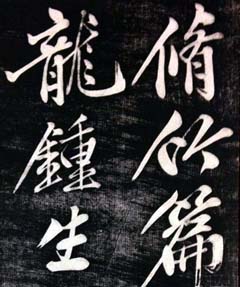 脩竹篇
龍鍾生